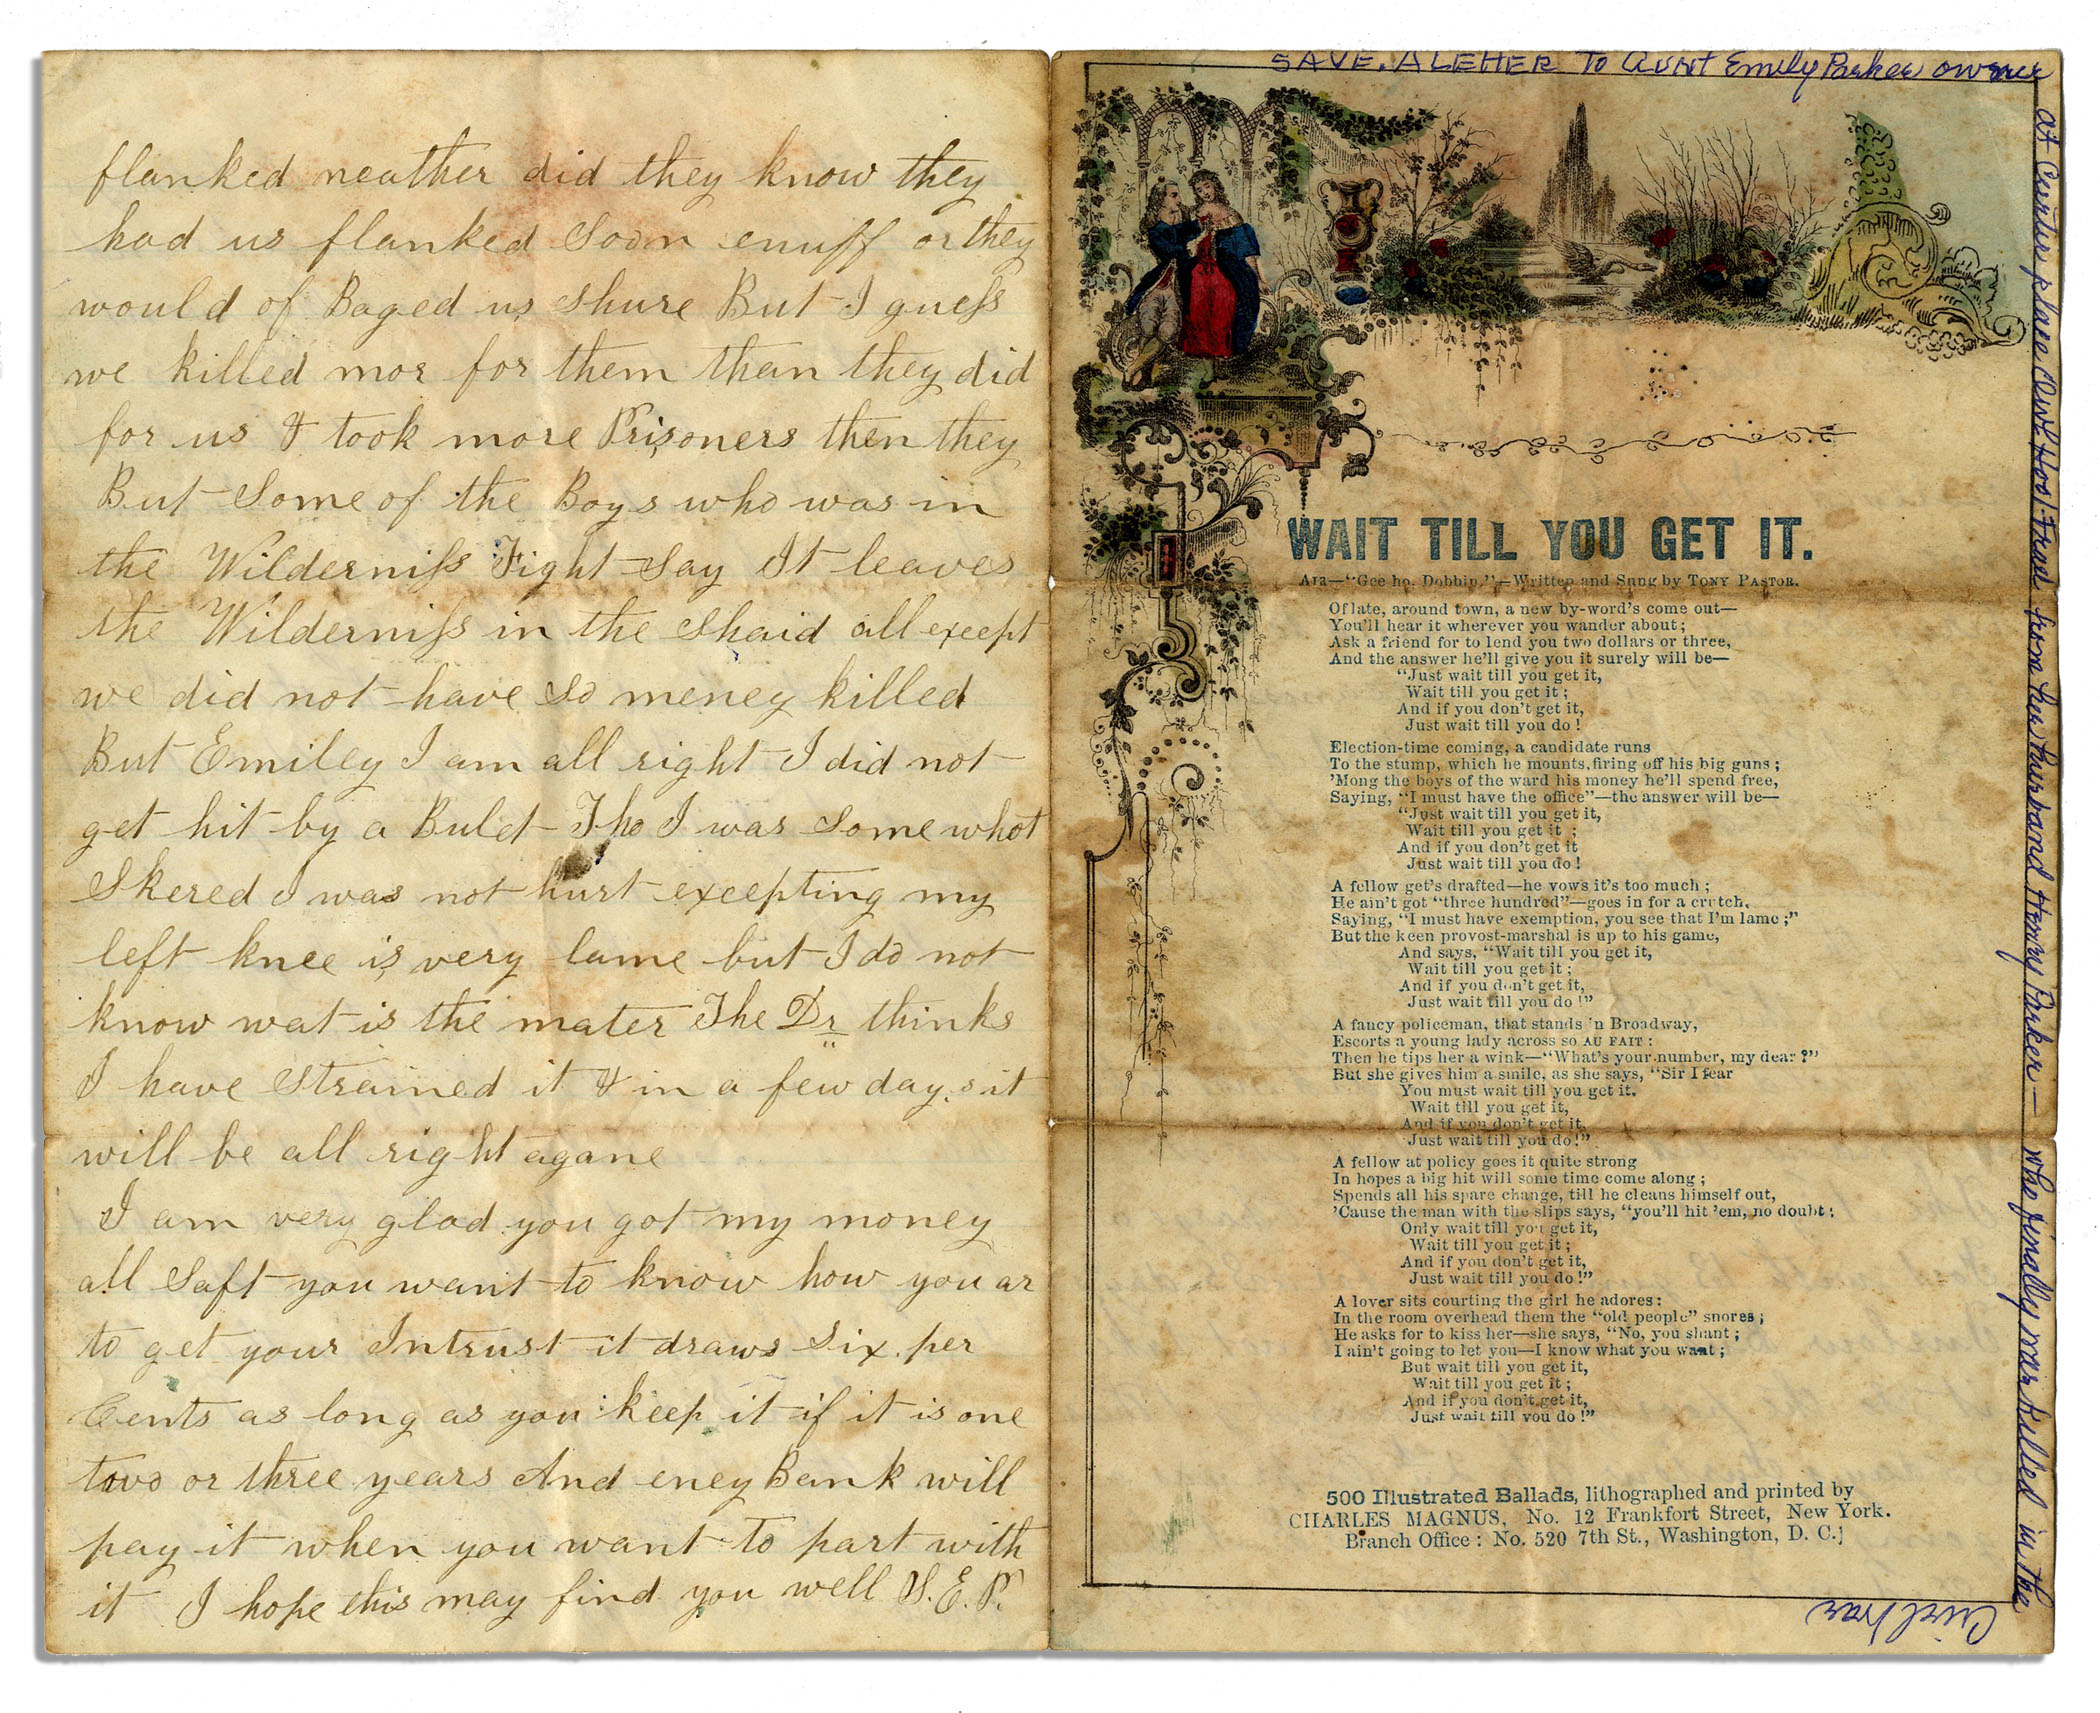 flanked neather did they know they
had us flanked Soon enuff or they
would of Baged us shure But I guess
we killed mor for them than they did
for us & took more Prisoners then they
But Some of the Boys who was in
the Wilderniss Fight Say It leaves
the Wilderniss in the Shaid all except
we did not have So meney killed
But Emiley I am all right I did not
get hit by a Bulet Tho I was Some what
Skered I was not hurt excepting my
left knee is very lame but I do not
know wat is the mater The Dr thinks
I have Strained it & in a few days it
will be all right agane
I am very glad you got my money
all Saft you want to know how you ar
to get your Intrust it draws Six per
Cents as long as you keep it if it is one
two or three years And eney Bank will
pay it when you want to part with
it I hope this may find you well S. E. P.
SAVE. A LETTER TO AUNT Emily Parker owner
at Curtis place from her husband Henry Parker — who finally was killed in the
Civil War
WAIT TILL YOU GET IT.
AIR—"Gee ho, Dobbin."—Written and Sung by TONY PASTOR.
Of late, around town, a new by-word's come out—
You'll hear it wherever you wander about;
Ask a friend for to lend you two dollars or three,
And the answer he'll give you it surely will be—
"Just wait till you get it,
Wait till you get it;
And if you don't get it,
Just wait till you do!
Election-time coming, a candidate runs
To the stump, which he mounts, firing off his big guns;
'Mong the boys of the ward his money he'll spend free,
Saying, "I must have the office"—the answer will be—
"Just wait till you get it,
Wait till you get it ;
And if you don't get it
Just wait till you do!
A fellow get's drafted—he vows it's too much;
He ain't got "three hundred"—goes in for a crutch,
Saying, "I must have exemption, you see that I'm lame;"
But the keen provost-marshal is up to his game,
And says, "Wait till you get it,
Wait till you get it;
And if you don't get it,
Just wait till you do!"
A fancy policeman, that stands 'n Broadway,
Escorts a young lady across so AU FAIT:
Then he tips her a wink—"What's your number, my dear?"
But she gives him a smile, as she says, "Sir I fear
You must wait till you get it.
Wait till you get it,
And if you don't get it,
Just wait till you do!"
A fellow at policy goes it quite strong
In hopes a big hit will some time come along;
Spends all his spare change, till he cleans himself out,
'Cause the man with the slips says, "you'll hit 'em, no doubt;
Only wait till you get it,
Wait till you get it;
And if you don't get it,
Just wait till you do!"
A lover sits courting the girl he adores:
In the room overhead them the "old people" snores;
He asks for to kiss her—she says, "No, you shant;
I ain't going to let you—I know what you want;
But wait till you get it,
Wait till you get it;
And if you don't get it,
Just wait till you do!"
500 Illustrated Ballads, lithographed and printed by
CHARLES MAGNUS, No. 12 Frankfort Street, New York.
Branch Office: No. 520 7th St., Washington, D. C.]